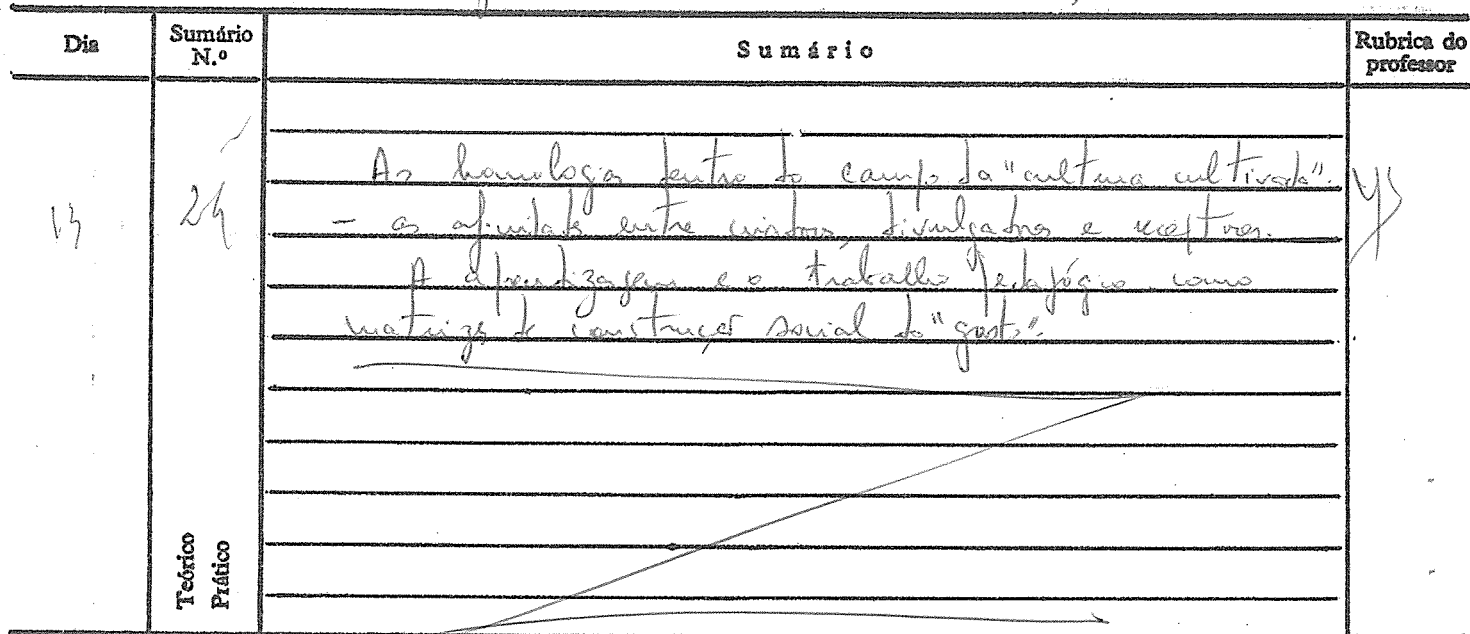 Dia
Sumário N.º
Sumário
Rubrica do professor
As homologias dentro do campo da "cultura cultivada".
- as afinidades entre criadores, divulgadores e receptores.
A aprendizagem e o trabalho pedagógico como
matrizes de construção social do "gosto".
13
24
Teórico
Prático